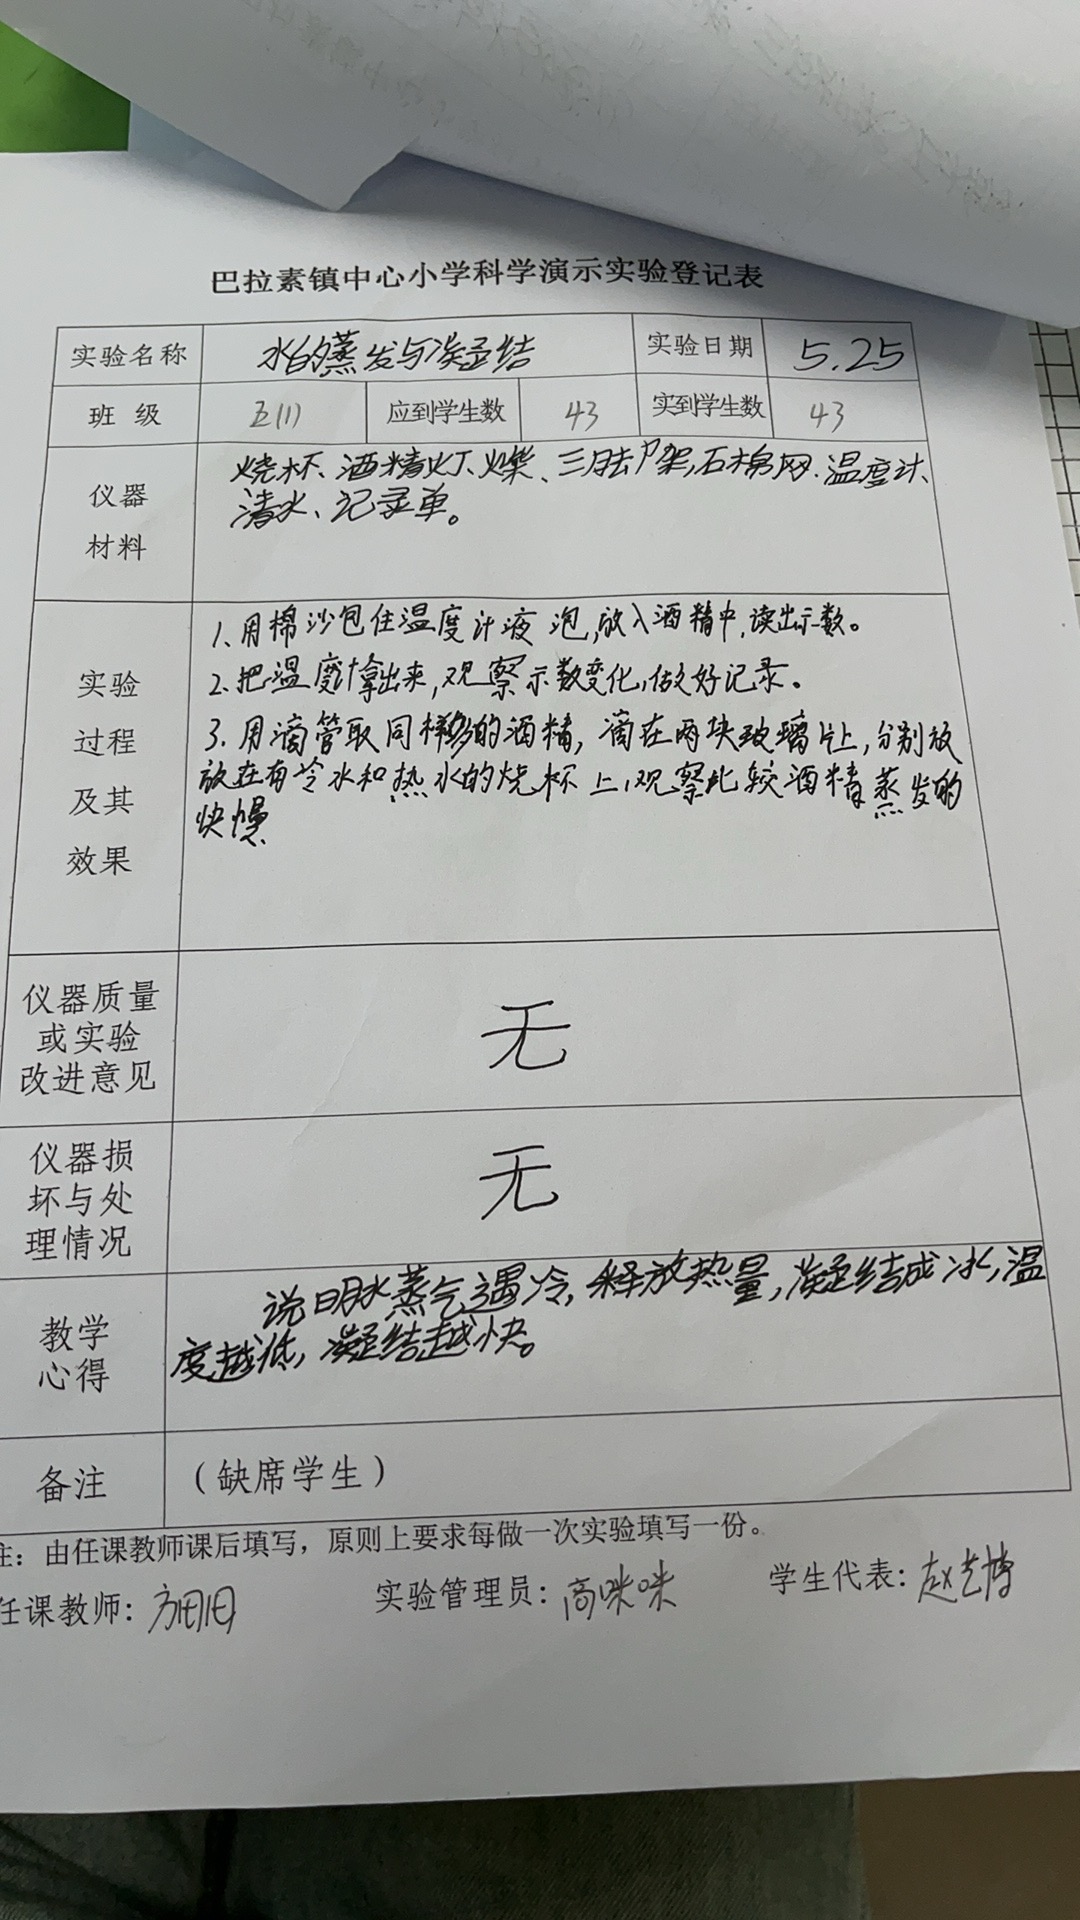 巴拉素镇中心小学科学演示实验登记表
实验名称 水的蒸发与凝结 实验日期 5.25
班 级 五(1) 应到学生数 43 实到学生数 43
仪器材料 烧杯、酒精灯、火柴、三脚架,石棉网、温度计、
清水、记录单。
实验过程及其效果
1.用棉沙包住温度计液泡,放入酒精中,读出示数。
2.把温度计拿出来,观察示数变化,做好记录。
3.用滴管取同样多的酒精,滴在两块玻璃片上,分别放
放在有冷水和热水的烧杯上,观察比较酒精蒸发的
快慢
仪器质量或实验改进意见 无
仪器损坏与处理情况 无
教学心得 说明水蒸气遇冷,释放热量,凝结成冰,温
度越低,凝结越快。
备注 (缺席学生)
注:由任课教师课后填写,原则上要求每做一次实验填写一份。
任课教师: 实验管理员:高咪咪 学生代表:赵艺博